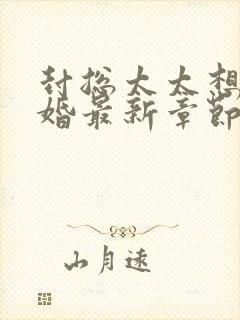 封总太太想
婚最新章节
山月遠